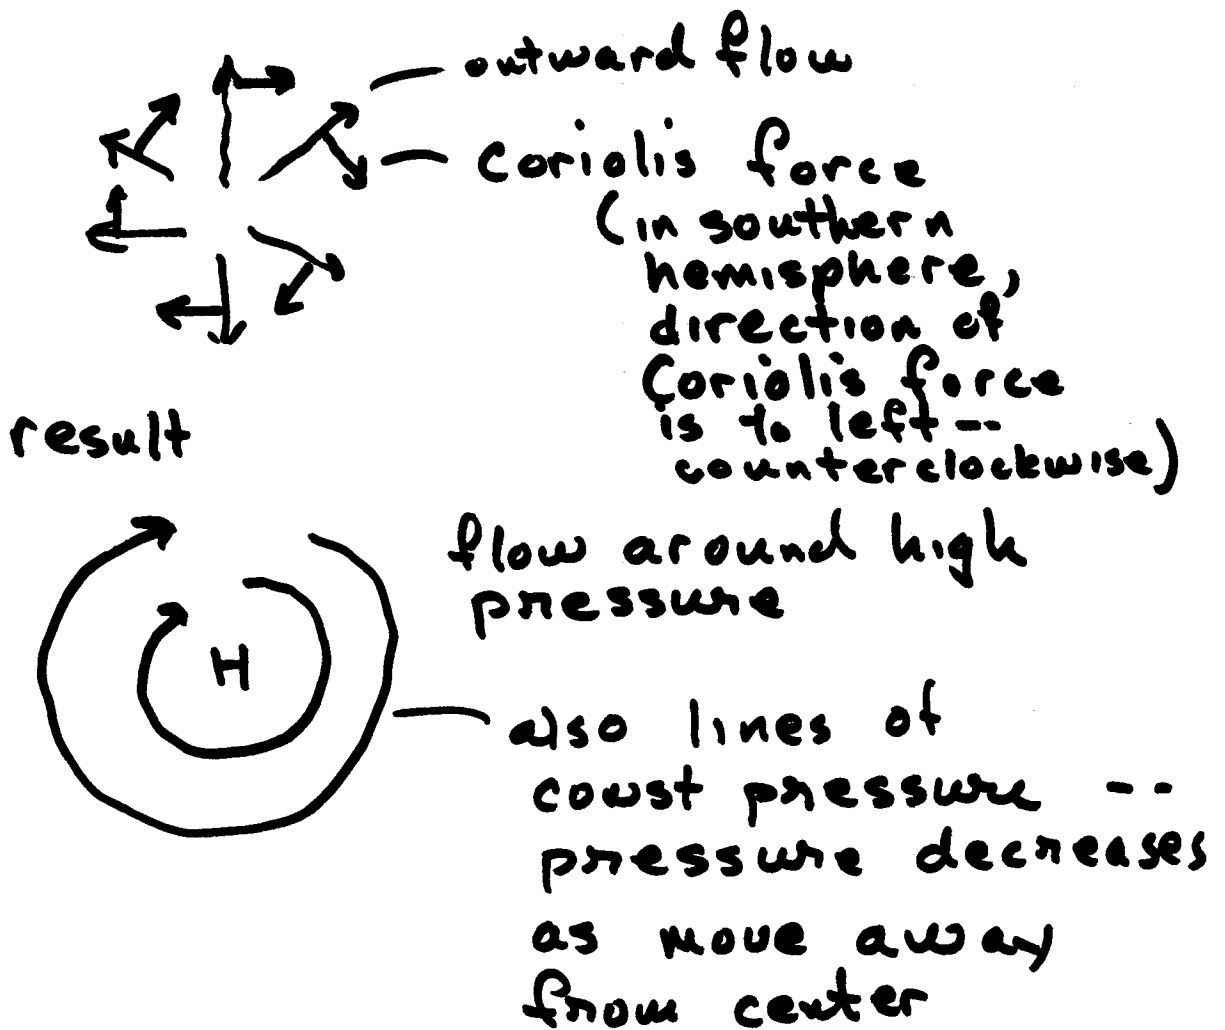 outward flow
Coriolis force
(in southern
hemisphere,
direction of
Coriolis force
is to left --
counterclockwise)
result
flow around high
pressure
H
also lines of
const pressure --
pressure decreases
as move away
from center